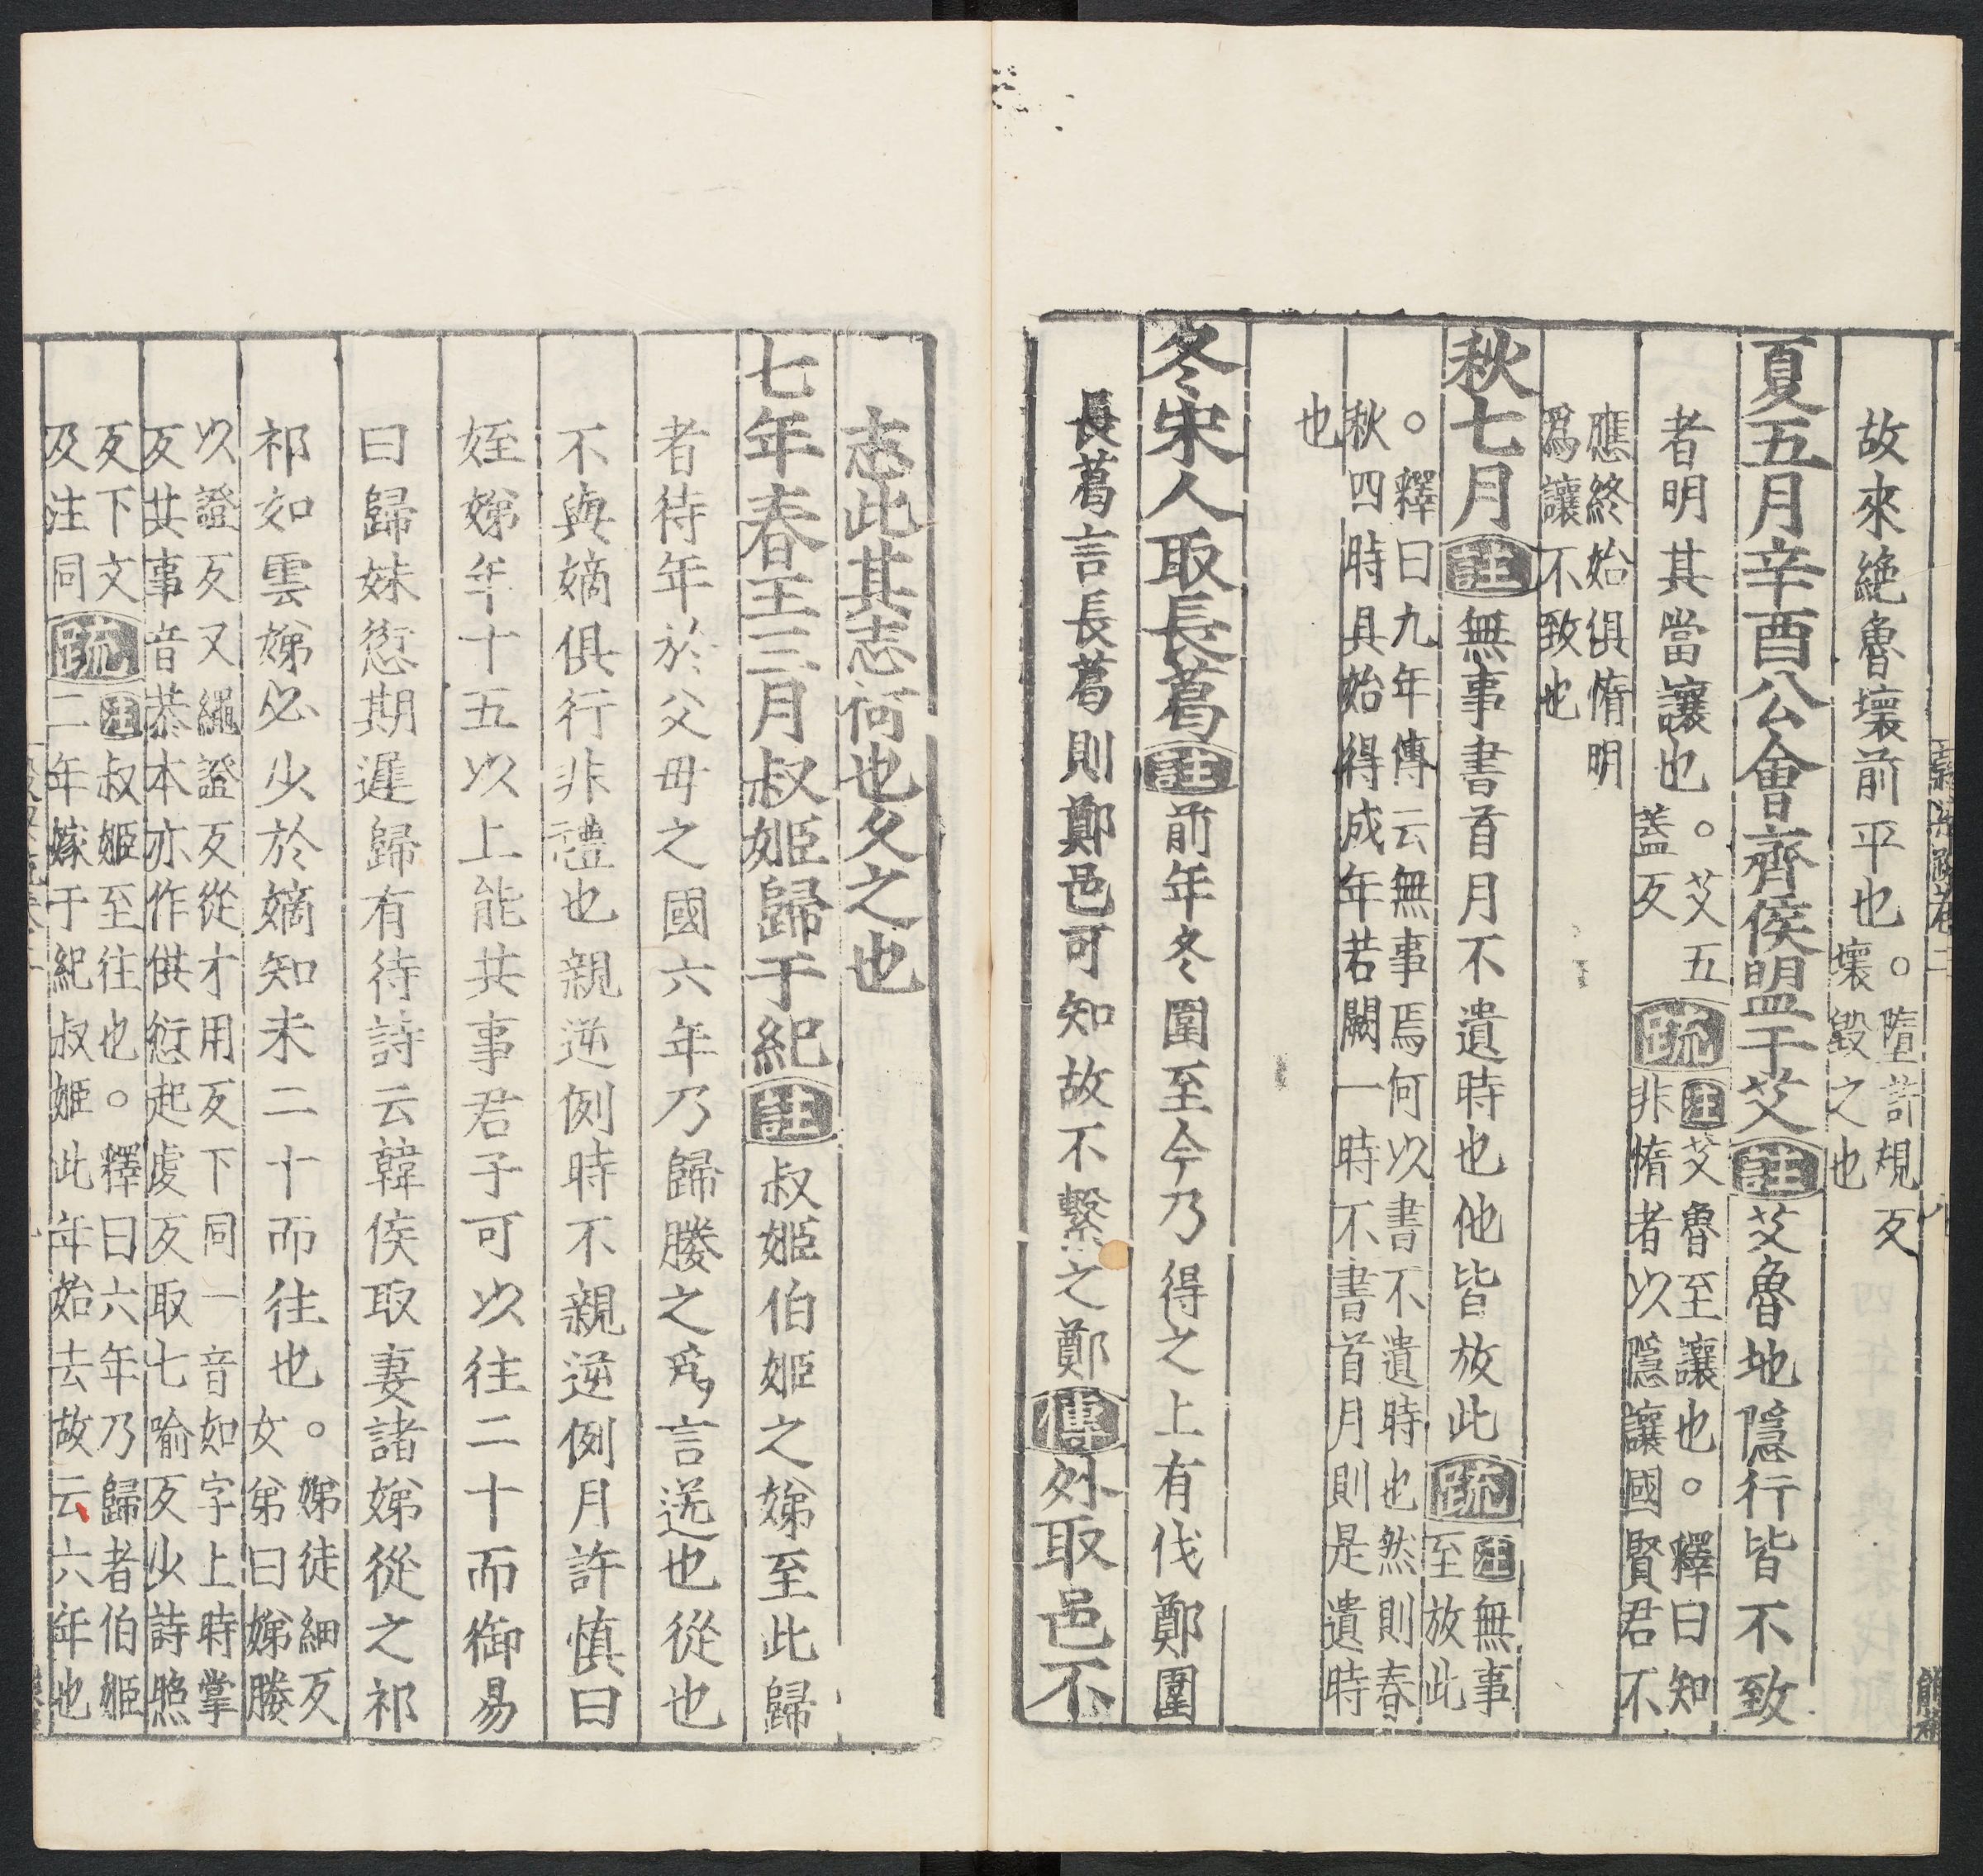 故來絶魯壞前平也。墮許規反
壞毀之也
夏五月辛酉公會齊侯盟于艾註艾魯地隱行皆不致
者明其當讓也。艾五
蓋反
疏注艾魯至讓也。釋曰知
非惰者以隱讓國賢君不
應終始俱惰明
爲讓不致也
秋七月註無事書首月不遺時也他皆放此疏注無事
至放此
。釋曰九年傳云無事焉何以書不遺時也然則春
秋四時具始得成年若闕一時不書首月則是遺時
也
冬宋人取長葛註前年冬圍至今乃得之上有伐鄭圍
長葛言長葛則鄭邑可知故不繫之鄭傳外取邑不
志此其志何也久之也
七年春王三月叔姬歸于紀註叔姬伯姬之娣至此歸
者待年於父母之國六年乃歸媵之爲言送也從也
不與嫡俱行非禮也親逆例時不親逆例月許慎曰
姪娣年十五以上能共事君子可以往二十而御易
曰歸妹愆期遲歸有待詩云韓侯取妻諸娣從之祁
祁如雲娣必少於嫡知未二十而往也。娣徒細反
女弟曰娣媵
以證反又繩證反從才用反下同一音如字上時掌
反共事音恭本亦作供愆起虔反取七喻反少詩照
反下文
及注同
疏注叔姬至往也。釋曰六年乃歸者伯姬
二年嫁于紀叔姬此年始去故云六年也